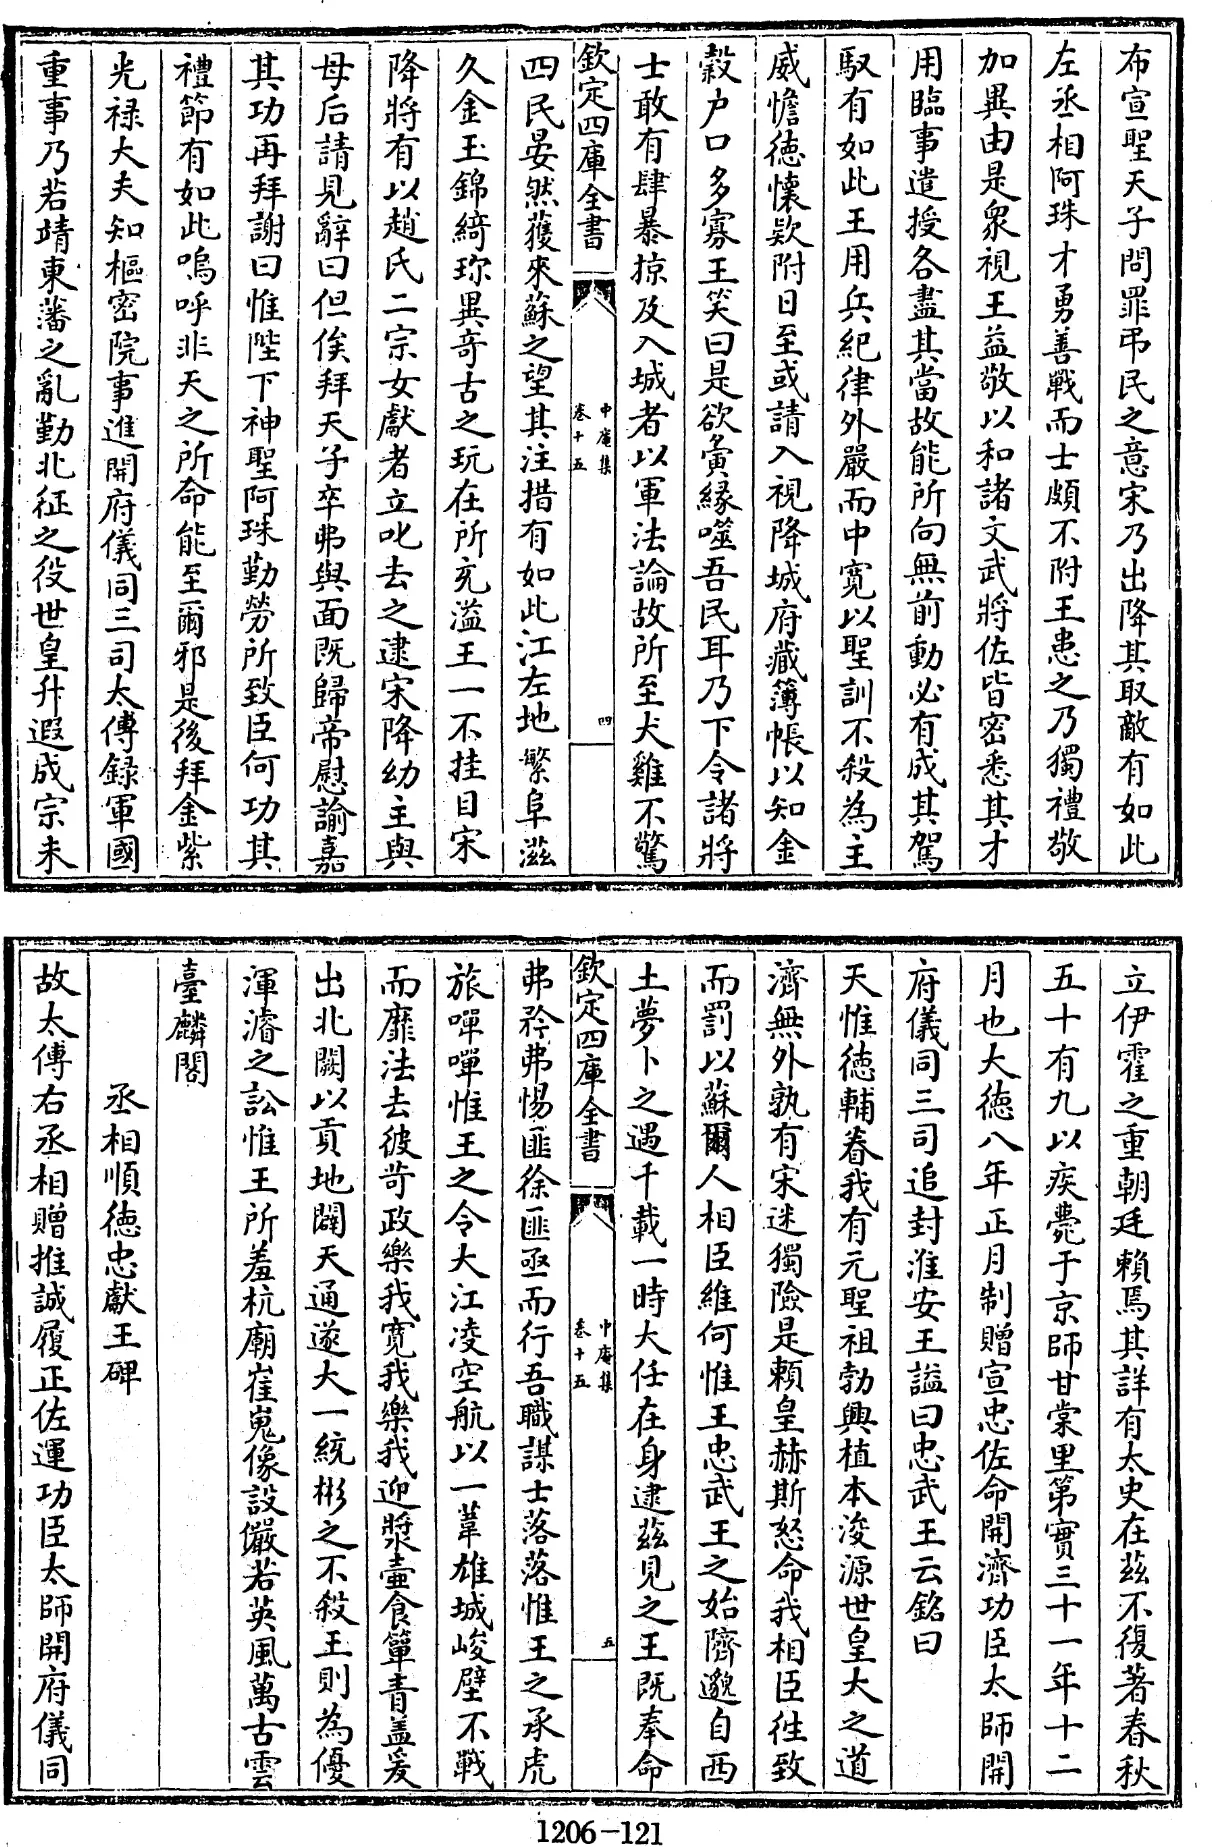 布宣聖天子問罪弔民之意宋乃出降其取敵有如此
左丞相阿珠才勇善戰而士頗不附王患之乃獨禮敬
加異由是衆視王益敬以和諸文武將佐皆密悉其才
用臨事遣授各盡其當故能所向無前動必有成其駕
馭有如此王用兵紀律外嚴而中寛以聖訓不殺為主
威憺徳懐欵附日至或請入視降城府藏簿帳以知金
穀户口多寡王笑曰是欲夤縁噬吾民耳乃下令諸將
士敢有肆暴掠及入城者以軍法論故所至犬雞不驚
欽定四庫全書
中庵集
卷十五
四
四民晏然獲來蘇之望其注措有如此江左地繁阜滋
久金玉錦綺珍異奇古之玩在所充溢王一不挂目宋
降將有以趙氏二宗女獻者立叱去之逮宋降幼主與
母后請見辭曰但俟拜天子卒弗與面既歸帝慰諭嘉
其功再拜謝曰惟陛下神聖阿珠勤勞所致臣何功其
禮節有如此嗚呼非天之所命能至爾邪是後拜金紫
光禄大夫知樞密院事進開府儀同三司太傅録軍國
重事乃若靖東藩之亂勤北征之役世皇升遐成宗未
立伊霍之重朝廷賴焉其詳有太史在兹不復著春秋
五十有九以疾薨于京師甘棠里第實三十一年十二
月也大徳八年正月制贈宣忠佐命開濟功臣太師開
府儀同三司追封淮安王謚曰忠武王云銘曰
天惟徳輔眷我有元聖祖勃興植本浚源世皇大之道
濟無外孰有宋迷獨險是頼皇赫斯怒命我相臣徃致
而罰以蘇爾人相臣維何惟王忠武王之始隮邈自西
土夢卜之遇千載一時大任在身逮兹見之王既奉命
欽定四庫全書
中庵集
卷十五
五
弗矜弗惕匪徐匪亟而行吾職謀士落落惟王之承虎
旅嘽嘽惟王之令大江凌空航以一葦雄城峻壁不戰
而靡法去彼苛政樂我寛我樂我迎漿壷食簞青盖爰
出北闕以貢地闢天通遂大一統彬之不殺王則為優
渾濬之訟惟王所羞杭廟崔嵬像設儼若英風萬古雲
臺麟閣
丞相順徳忠獻王碑
故太傅右丞相贈推誠履正佐運功臣太師開府儀同
1206-121